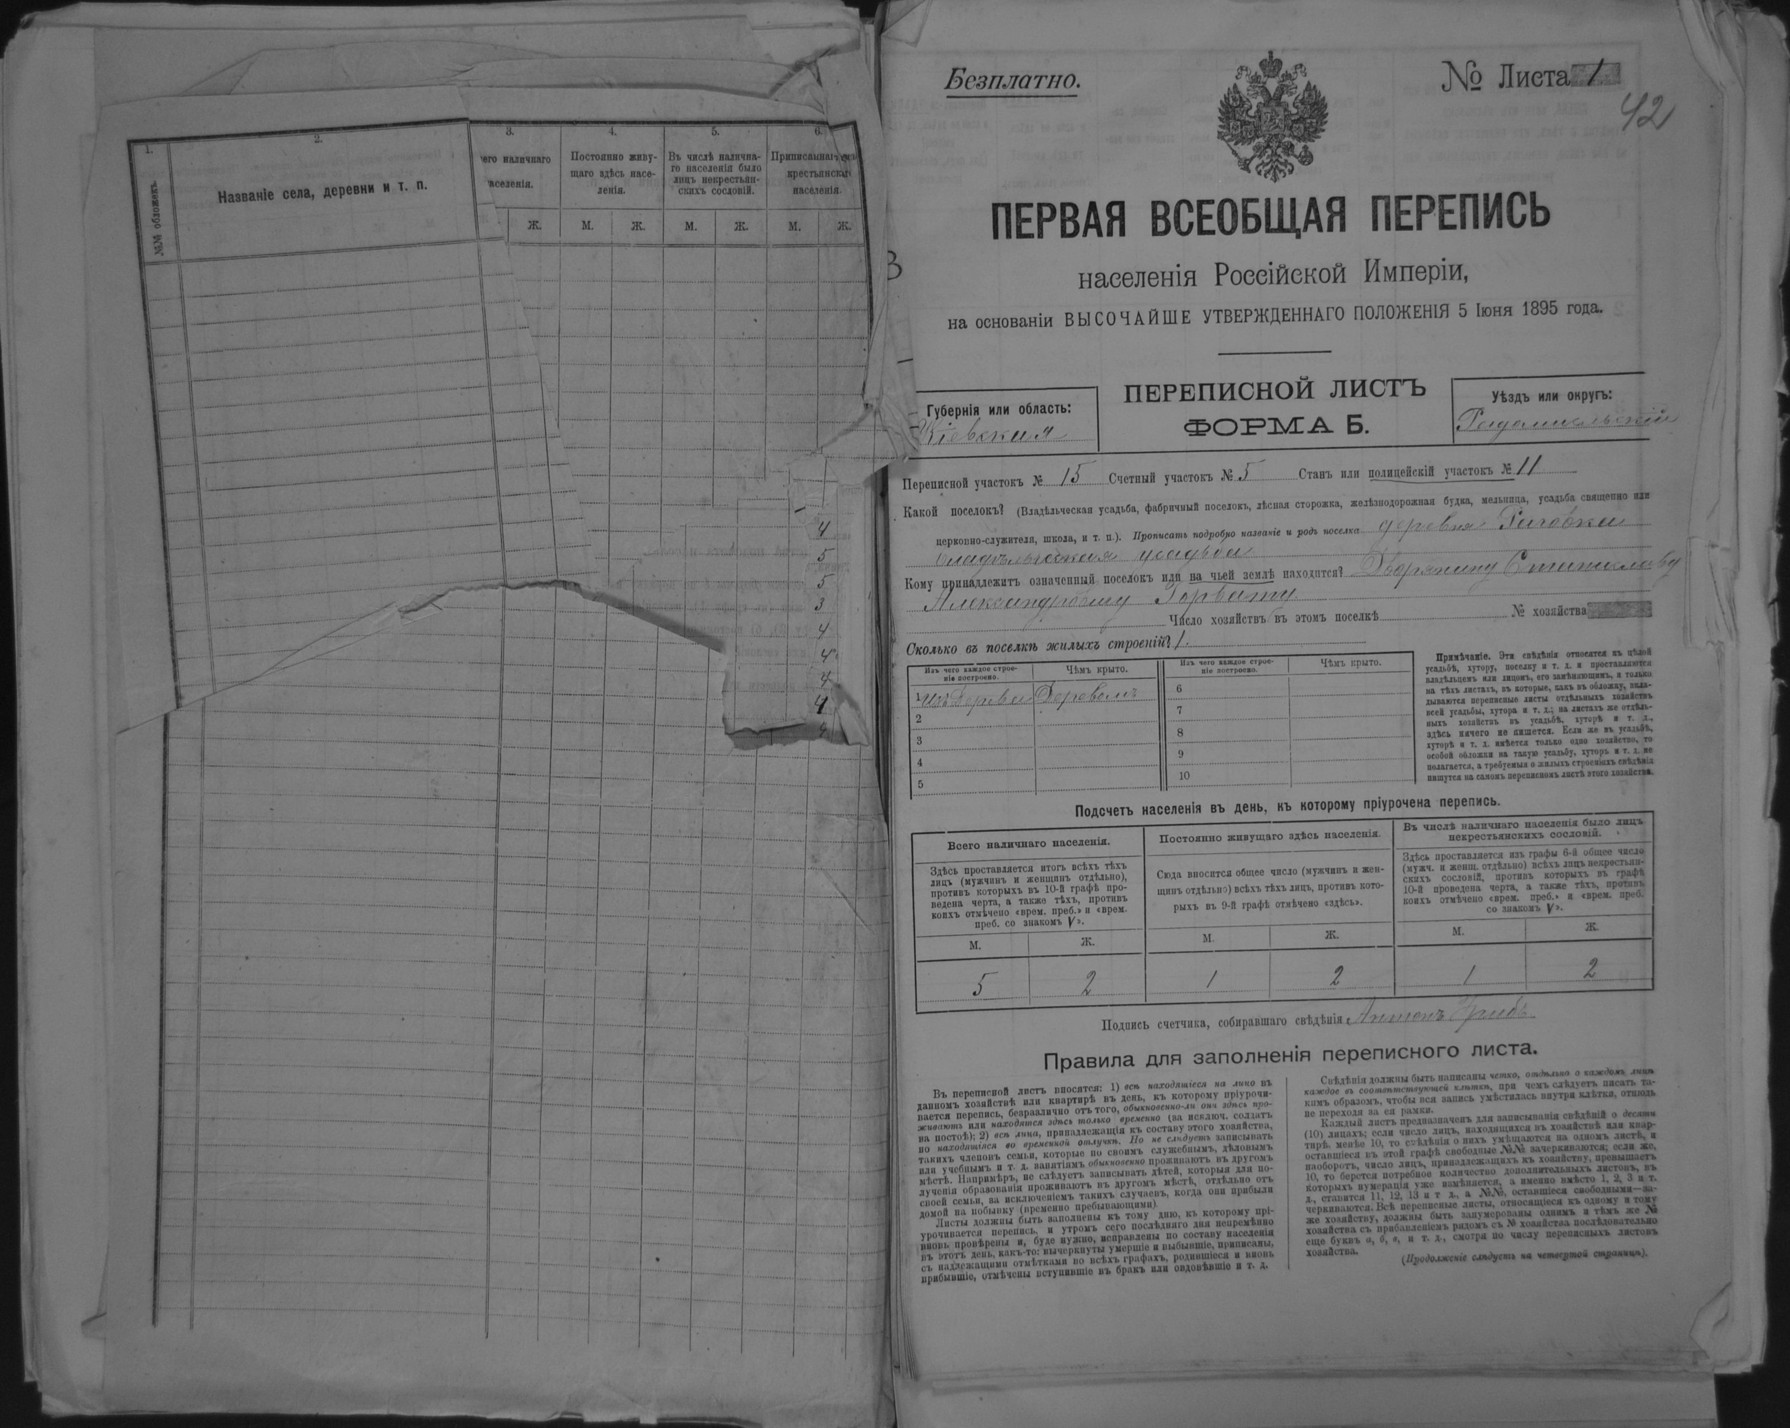 1.
№№ обложекъ.
2.
Названіе села, деревни и т. п.
3.
его наличнаго
аселенія.
Ж.
4.
Постоянно живу-
щаго здѣсь насе-
ленія.
М. Ж.
5.
Въ числѣ налична-
го населенія было
лицъ некрестьян-
скихъ сословій.
М. Ж.
6.
Приписаннаго
крестьянскаго
населенія.
М. Ж.
4
5
5
3
4
4
4
4
Безплатно.
№ Листа 1
42
ПЕРВАЯ ВСЕОБЩАЯ ПЕРЕПИСЬ
населенія Россійской Имперіи,
на основаніи ВЫСОЧАЙШЕ УТВЕРЖДЕННАГО ПОЛОЖЕНІЯ 5 Іюня 1895 года.
Губернія или область:
Кіевская
ПЕРЕПИСНОЙ ЛИСТЪ
ФОРМА Б.
Уѣздъ или округъ:
Радомысльскій
Переписной участокъ № 15 Счетный участокъ № 5 Станъ или полицейскій участокъ № 11
Какой поселокъ? (Владѣльческая усадьба, фабричный поселокъ, лѣсная сторожка, желѣзнодорожная будка, мельница, усадьба священно или
церковно-служителя, школа, и т. п.). Прописать подробно названіе и родъ поселка деревня
владѣльческая усадьба
Кому принадлежитъ означенный поселокъ или на чьей землѣ находится? Дворянину Станиславу
Александровичу Горвату
Число хозяйствъ въ этомъ поселкѣ № хозяйства
Сколько въ поселкѣ жилыхъ строеній? 1.
Изъ чего каждое строе-
ніе построено.
Чѣмъ крыто.
Изъ чего каждое строе-
ніе построено.
Чѣмъ крыто.
1 Изъ дерева Деревомъ 6
2 7
3 8
4 9
5 10
Примѣчаніе. Эти свѣдѣнія относятся къ цѣлой
усадьбѣ, хутору, поселку и т. д. и проставляются
владѣльцемъ или лицомъ, его замѣняющимъ, и только
на тѣхъ листахъ, въ которые, какъ въ обложку, вкла-
дываются переписные листы отдѣльныхъ хозяйствъ
всей усадьбы, хутора и т. д.; на листахъ же отдѣль-
ныхъ хозяйствъ въ усадьбѣ, хуторѣ и т. д.,
здѣсь ничего не пишется. Если же въ усадьбѣ,
хуторѣ и т. д. имѣется только одно хозяйство, то
особой обложки на такую усадьбу, хуторъ и т. д. не
полагается, а требуемыя о жилыхъ строеніяхъ свѣдѣнія
пишутся на самомъ переписномъ листѣ этого хозяйства.
Подсчетъ населенія въ день, къ которому пріурочена перепись.
Всего наличнаго населенія.
Здѣсь проставляется итогъ всѣхъ тѣхъ
лицъ (мужчинъ и женщинъ отдѣльно),
противъ которыхъ въ 10-й графѣ про-
ведена черта, а также тѣхъ, противъ
коихъ отмѣчено «врем. преб.» и «врем.
преб. со знакомъ V».
М. Ж.
5 2
Постоянно живущаго здѣсь населенія.
Сюда вносится общее число (мужчинъ и жен-
щинъ отдѣльно) всѣхъ тѣхъ лицъ, противъ кото-
рыхъ въ 9-й графѣ отмѣчено «здѣсь».
М. Ж.
1 2
Въ числѣ наличнаго населенія было лицъ
некрестьянскихъ сословій.
Здѣсь проставляется изъ графы 6-й общее число
(мужч. и женщ. отдѣльно) всѣхъ лицъ некрестьян-
скихъ сословій, противъ которыхъ въ графѣ
10-й проведена черта, а также тѣхъ, противъ
коихъ отмѣчено «врем. преб.» и «врем. преб.
со знакомъ V».
М. Ж.
1 2
Подпись счетчика, собиравшаго свѣдѣнія Антонъ
Правила для заполненія переписного листа.
Въ переписной листъ вносятся: 1) всѣ находящіеся на лицо въ
данномъ хозяйствѣ или квартирѣ въ день, къ которому пріурочи-
вается перепись, безразлично отъ того, обыкновенно-ли они здѣсь про-
живаютъ или находятся здѣсь только временно (за исключ. солдатъ
на постоѣ); 2) всѣ лица, принадлежащія къ составу этого хозяйства,
но находящіяся во временной отлучкѣ. Но не слѣдуетъ записывать
такихъ членовъ семьи, которые по своимъ служебнымъ, дѣловымъ
или учебнымъ и т. д. занятіямъ обыкновенно проживаютъ въ другомъ
мѣстѣ. Напримѣръ, не слѣдуетъ записывать дѣтей, которыя для по-
лученія образованія проживаютъ въ другомъ мѣстѣ, отдѣльно отъ
своей семьи, за исключеніемъ такихъ случаевъ, когда они прибыли
домой на побывку (временно пребывающими).
Листы должны быть заполнены къ тому дню, къ которому прі-
урочивается перепись, и утромъ сего послѣдняго дня непремѣнно
вновь провѣрены и, буде нужно, исправлены по составу населенія
въ этотъ день, какъ-то: вычеркнуты умершіе и выбывшіе, приписаны,
съ надлежащими отмѣтками во всѣхъ графахъ, родившіеся и вновь
прибывшіе, отмѣчены вступившіе въ бракъ или овдовѣвшіе и т. д.
Свѣдѣнія должны быть написаны четко, отдѣльно о каждомъ лицѣ
каждое въ соотвѣтствующей клѣткѣ, при чемъ слѣдуетъ писать та-
кимъ образомъ, чтобы вся запись умѣстилась внутри клѣтки, отнюдь
не переходя за ея рамки.
Каждый листъ предназначенъ для записыванія свѣдѣній о десяти
(10) лицахъ; если число лицъ, находящихся въ хозяйствѣ или квар-
тирѣ, менѣе 10, то свѣдѣнія о нихъ умѣщаются на одномъ листѣ, и
оставшіеся въ этой графѣ свободные №№ зачеркиваются; если же,
наоборотъ, число лицъ, принадлежащихъ къ хозяйству, превышаетъ
10, то берется потребное количество дополнительныхъ листовъ, въ
которыхъ нумерація уже измѣняется, а именно вмѣсто 1, 2, 3 и т.
д., ставится 11, 12, 13 и т. д., а №№, оставшіеся свободными—за-
черкиваются. Всѣ переписные листы, относящіеся къ одному и тому
же хозяйству, должны быть занумерованы однимъ и тѣмъ же №
хозяйства съ прибавленіемъ рядомъ съ № хозяйства послѣдовательно
еще буквъ а, б, в, и т. д., смотря по числу переписныхъ листовъ
хозяйства.
(Продолженіе слѣдуетъ на четвертой страницѣ).